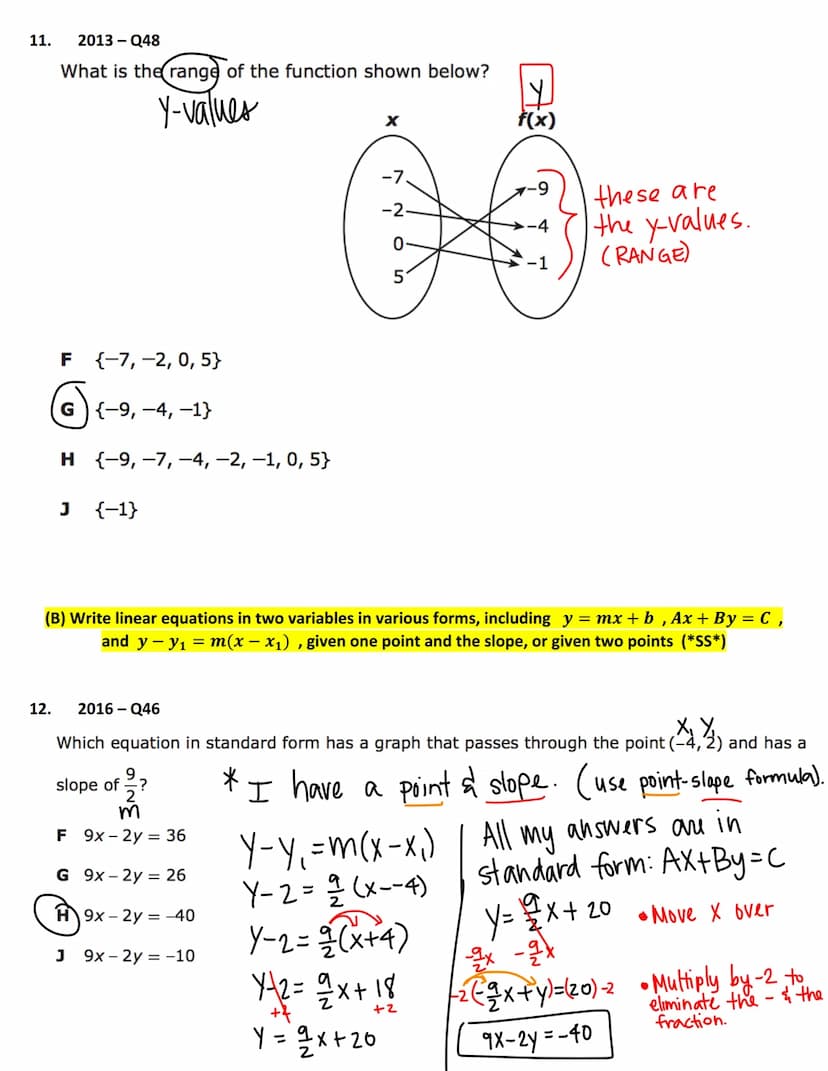 11. 2013 – Q48
What is the range of the function shown below?
y-values
y
x f(x)
−7
−2
0
5
−9
−4
−1
these are
the y-values.
(RANGE)
F {−7, −2, 0, 5}
G {−9, −4, −1}
H {−9, −7, −4, −2, −1, 0, 5}
J {−1}
(B) Write linear equations in two variables in various forms, including y = mx + b , Ax + By = C ,
and y − y₁ = m(x − x₁) , given one point and the slope, or given two points (*SS*)
12. 2016 – Q46
x₁ y₁
Which equation in standard form has a graph that passes through the point (−4, 2) and has a
slope of 9/2?
m
* I have a point & slope. (use point-slope formula).
F 9x – 2y = 36
G 9x – 2y = 26
H 9x – 2y = –40
J 9x – 2y = –10
y-y₁=m(x-x₁)
y-2= 9/2 (x--4)
y-2= 9/2(x+4)
y-2= 9/2x+18
+2 +2
y = 9/2x+20
All my answers are in
standard form: AX+By=C
y= 9/2x+20 • Move x over
-9/2x -9/2x
-2(-9/2x+y)=(20)-2
• Multiply by -2 to
eliminate the - & the
fraction.
9x-2y=-40